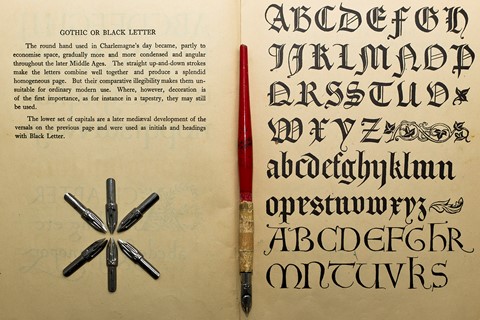 GOTHIC OR BLACK LETTER
The round hand used in Charlemagne's day became, partly to
economise space, gradually more and more condensed and angular
throughout the later Middle Ages. The straight up-and-down strokes
make the letters combine well together and produce a splendid
homogeneous page. But their comparative illegibility makes them un-
suitable for ordinary modern use. Where, however, decoration is
of the first importance, as for instance in a tapestry, they may still
be used.
The lower set of capitals are a later mediæval development of the
versals on the previous page and were used as initials and headings
with Black Letter.
ABCDEFGH
IJKLMNOP
QRSSTUV
WXYZ
abcdefghijklmn
opqrstuvwxyz
ABCDEFGhR
MNTUVKS